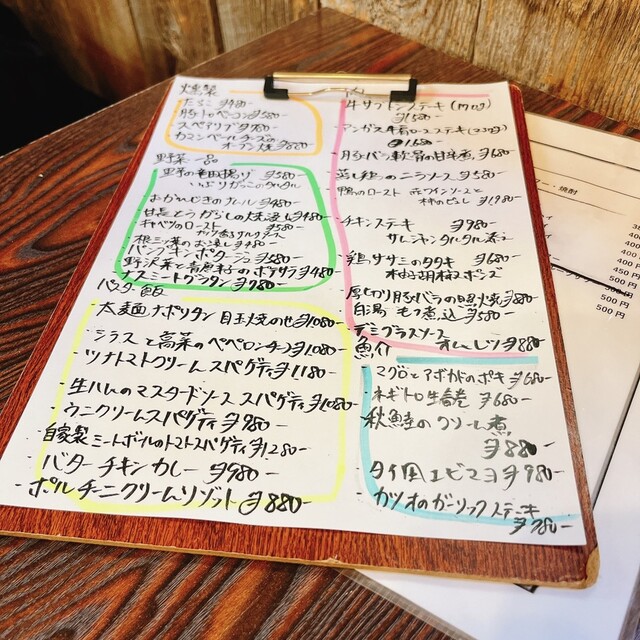 燻製
たらこ ¥480-
豚トロベーコン ¥580-
スペアリブ ¥780-
カマンベールチーズ
オーブン焼 ¥880-
野菜一品
里芋の竜田揚げ ¥580-
いぶりがっこのタルタル
おかひじきのナムル ¥480-
甘長とうがらしの焼浸し ¥480-
キャベツのロースト ¥580-
根三つ葉のお浸し ¥480-
パンプキンポタージュ ¥580-
野沢菜と青唐辛子のポテサラ ¥480-
ナスミートグラタン ¥780-
パスタ・飯
太麺ナポリタン 目玉焼のせ ¥1080-
シラスと高菜のペペロンチーノ ¥1,080-
ツナトマトクリームスパゲティ ¥1180-
生ハムのマスタードソーススパゲティ ¥1080-
ウニクリームスパゲティ ¥980-
自家製ミートボールのトマトスパゲティ ¥1280-
バターチキンカレー ¥980-
ポルチーニクリームリゾット ¥880-
肉
牛サガリステーキ
¥1580-
アンガス牛肩ロースステーキ
¥1680-
豚バラ軟骨の甘辛煮 ¥680-
蒸し鶏のニラソース ¥580-
鴨のロースト 赤ワインソースと
柿のピュレ ¥1980-
チキンステーキ ¥980-
サルシャンタルタル添え
鶏ササミのタタキ ¥680-
柚子胡椒ポンズ
厚切り豚バラの塩焼 ¥880-
白湯もつ煮込 ¥580-
デミグラスソース
オムレツ ¥880-
魚介
マグロとアボカドのポキ ¥680-
ネギトロ生春巻 ¥680-
秋鮭のクリーム煮
¥880-
タイ風エビマヨ ¥980-
カツオのガーリックステーキ
¥780-
焼酎
400円
400円
450円
400円
500円
500円
500円